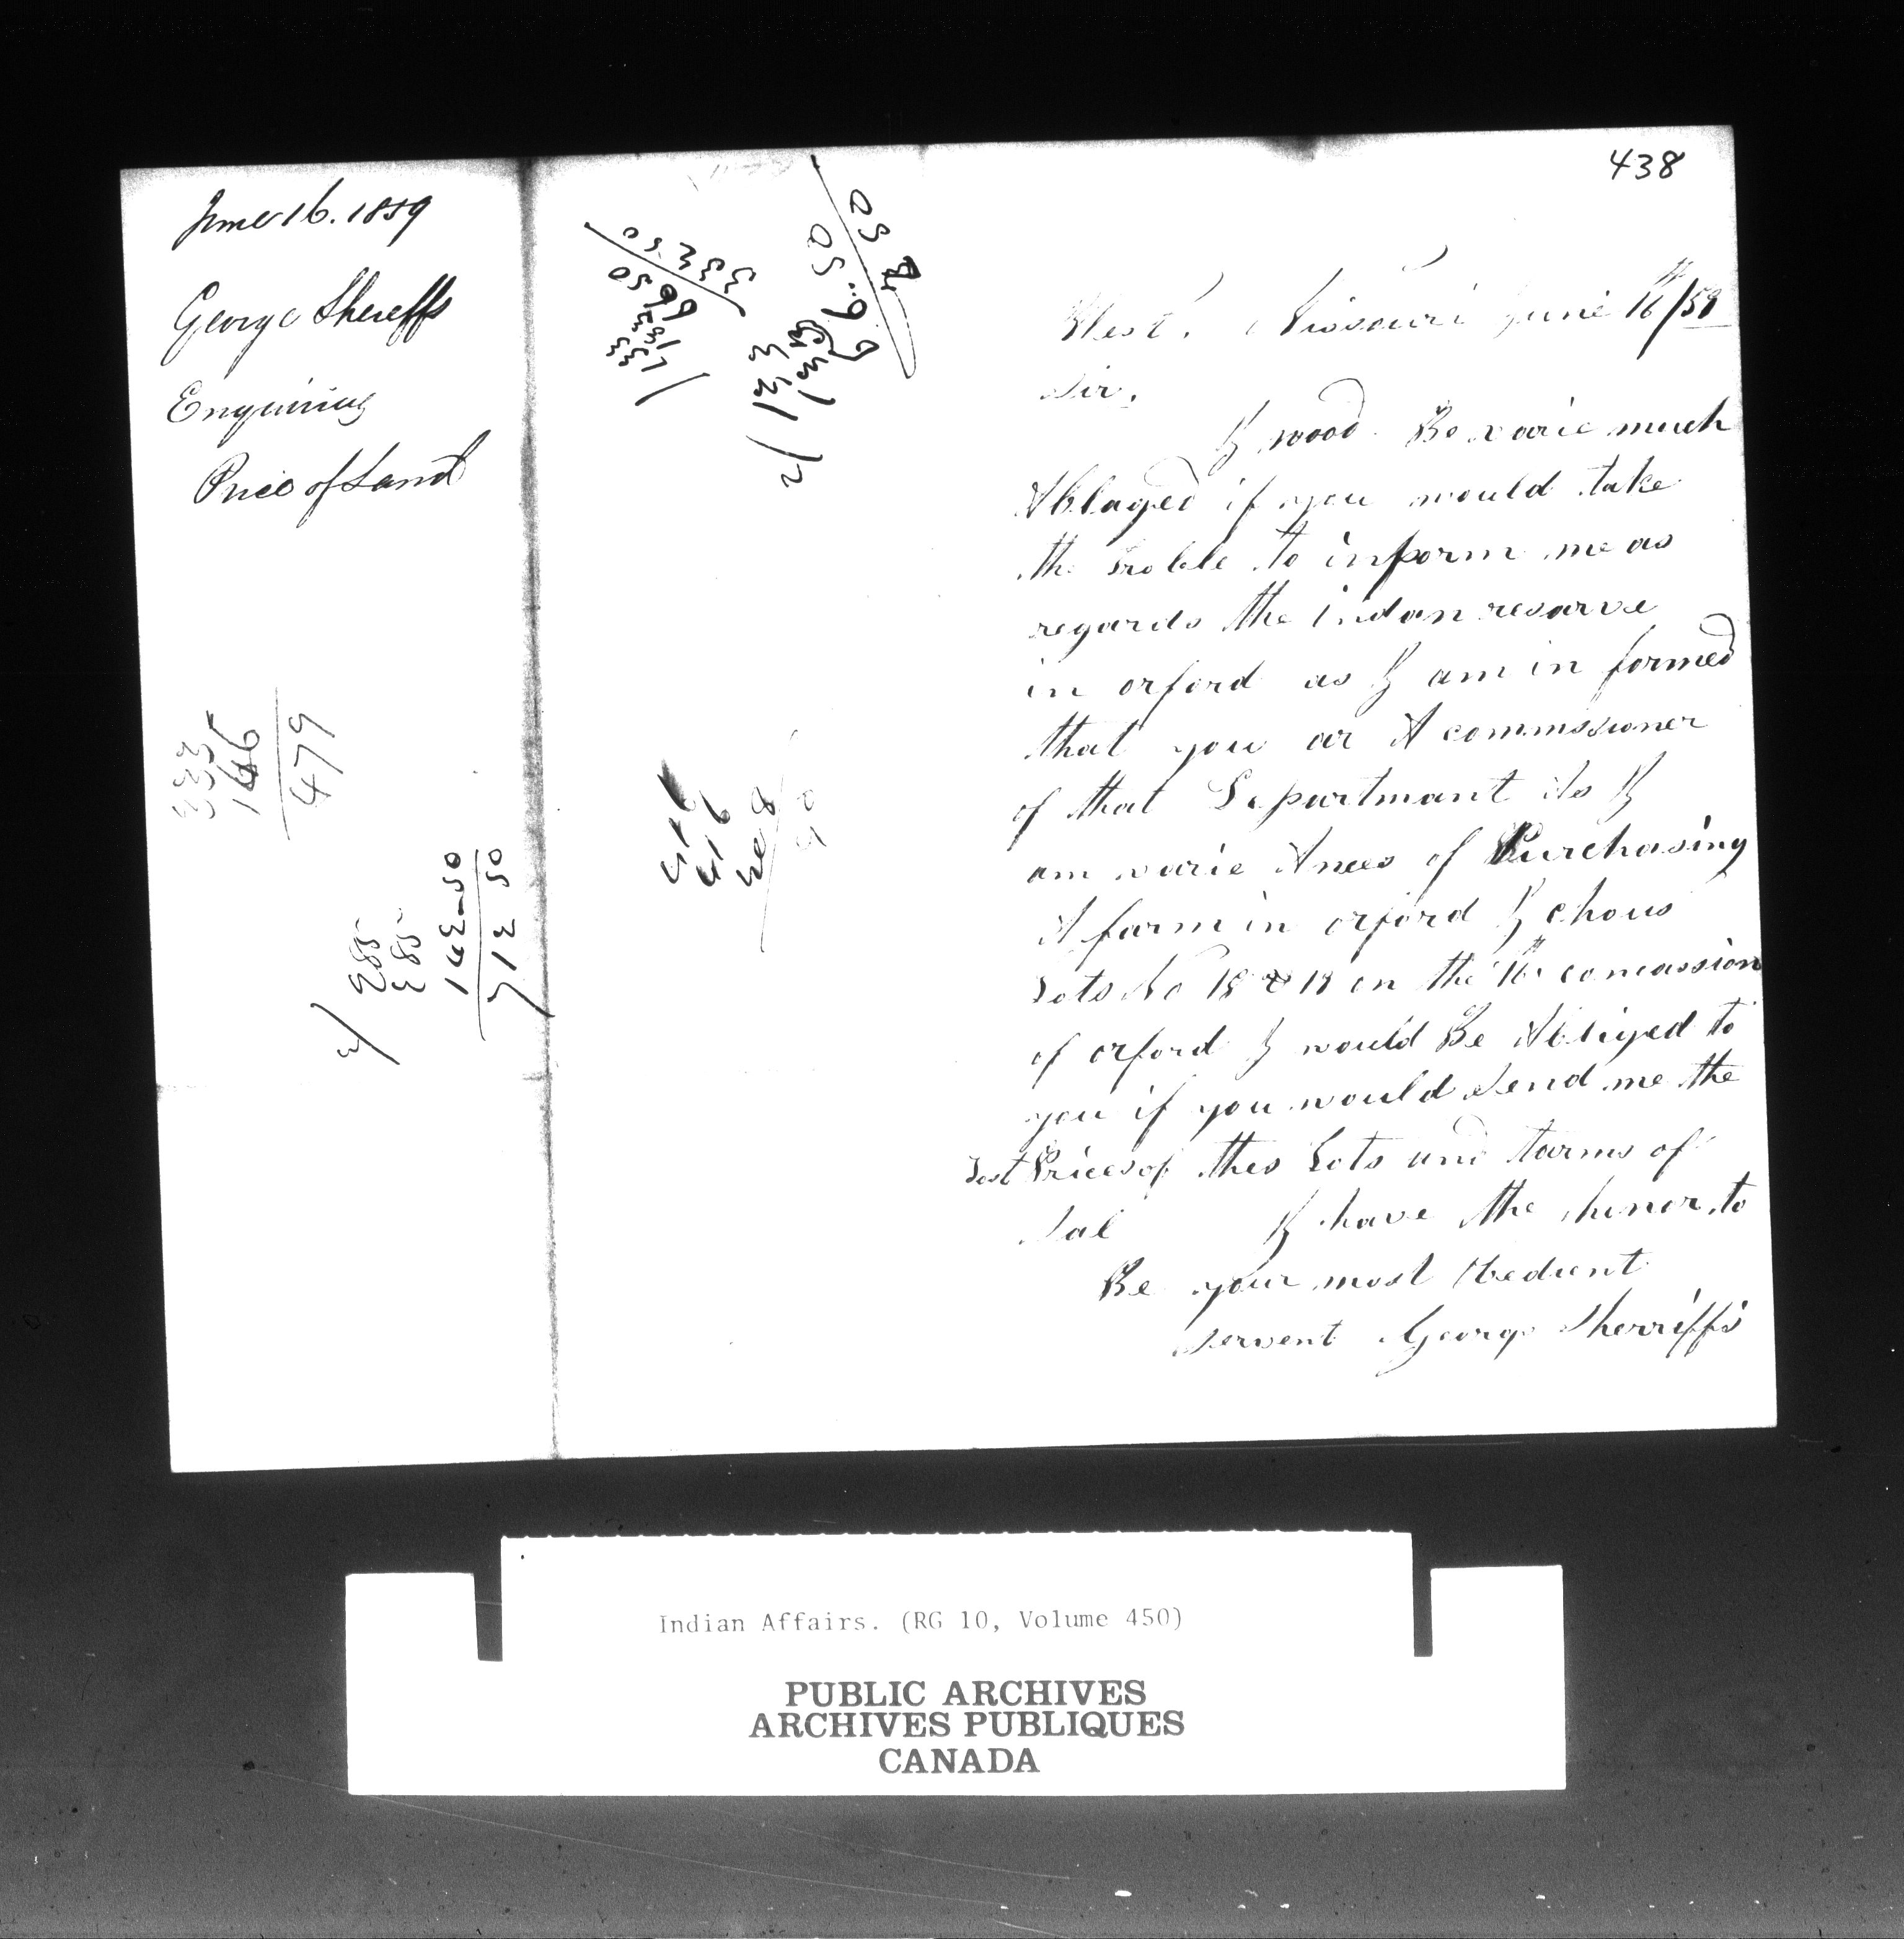 438
June 16. 1859
George Shereffs
Enquiring
Price of Land
333
146
479
285
285
1425
50
71250
West. Missouri June 16th/59
Sir,
I wood Be varie much
Ablaged if you would take
the troble to inform me as
regards the indan resarve
in orford as I am in formed
that you ar A commssioner
of that Departmant As I
am varie Anees of Purchasing
A farm in orford I chous
Lots No 18 & 19 on the concassion
of orford I would Be Abliged to
you if you would Send me the
Prices of thes Lots and tarms of
Sal I have the honor to
Be your most Obedient
servent George Sherriffs
Indian Affairs. (RG 10, Volume 450)
PUBLIC ARCHIVES
ARCHIVES PUBLIQUES
CANADA